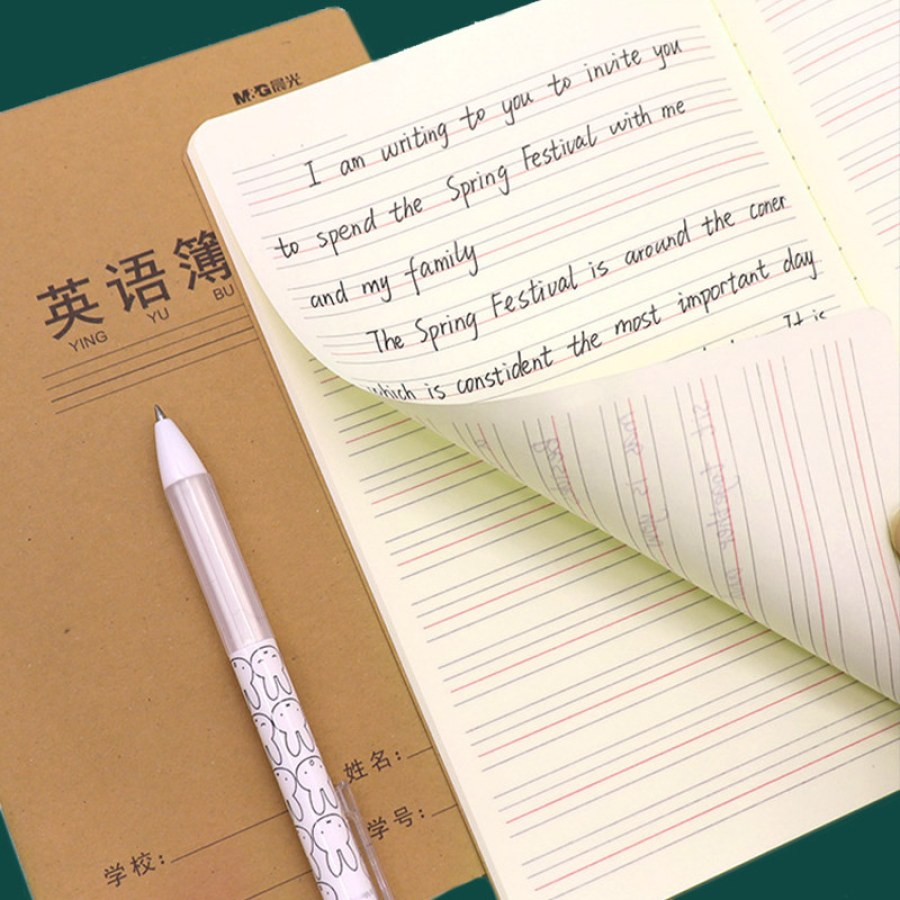 M&G晨光
英语簿
YING YU BU
I am writing to you to invite you
to spend the Spring Festival with me
and my family
The Spring Festival is around the coner
which is constident the most important day
It is
姓名:
学号:
学校: